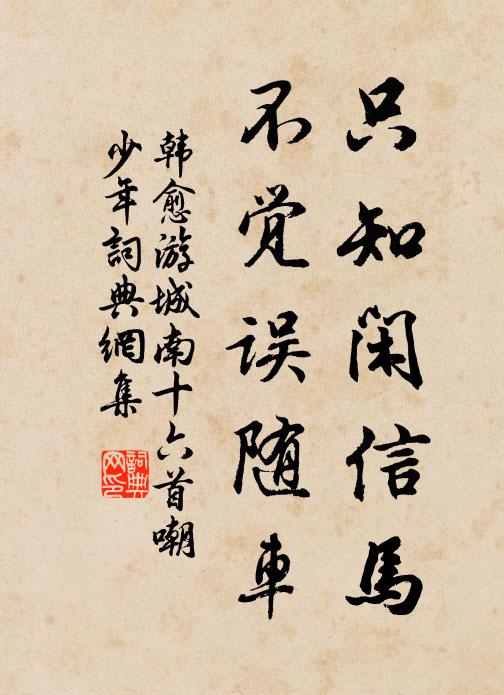 只知闲信馬
不觉误随車
韩愈游城南十六首嘲
少年詞典網集
詞典网印